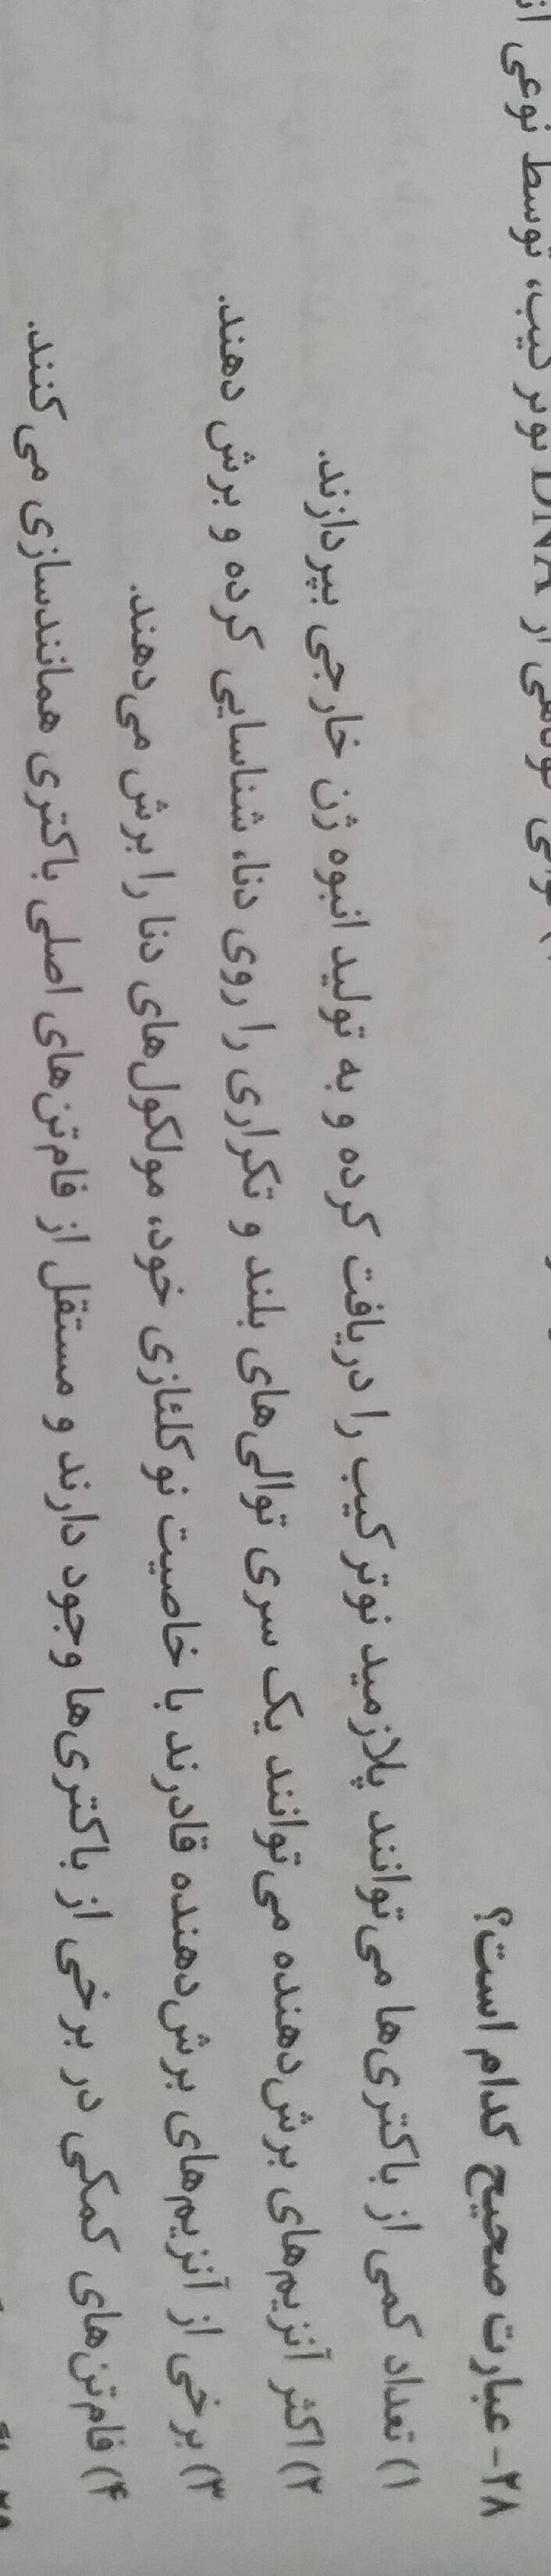 توسط نوعی
۲۸- عبارت صحیح کدام است؟
۱) تعداد کمی از باکتری‌ها می‌توانند پلازمید نوترکیب را دریافت کرده و به تولید انبوه ژن خارجی بپردازند.
۲) اکثر آنزیم‌های برش‌دهنده می‌توانند یک سری توالی‌های بلند و تکراری را روی دنا، شناسایی کرده و برش دهند.
۳) برخی از آنزیم‌های برش‌دهنده قادرند با خاصیت نوکلئازی خود، مولکول‌های دنا را برش می‌دهند.
۴) فام‌تن‌های کمکی در برخی از باکتری‌ها وجود دارند و مستقل از فام‌تن‌های اصلی باکتری همانندسازی می‌کنند.